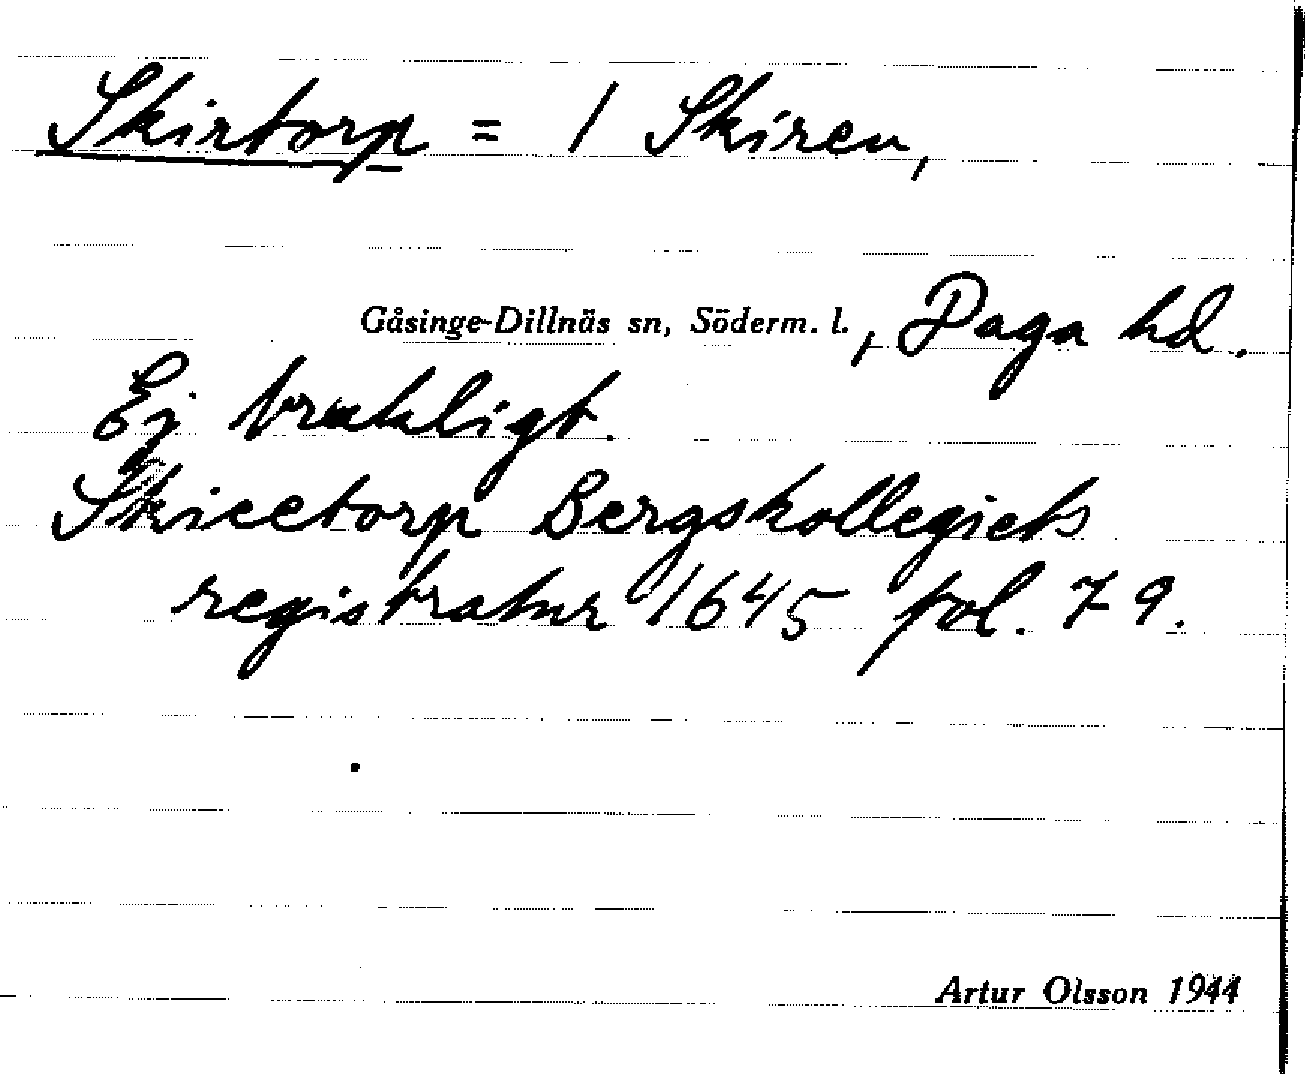 Skirtorp = 1 Skiren,
Gåsinge-Dillnäs sn, Söderm. l., Daga hd.
Ej brukligt.
Skicetorp Bergskollegiets
registratur 1645 fol. 79.
Artur Olsson 1944